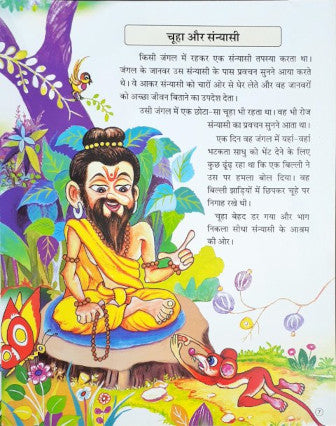 चूहा और संन्यासी
किसी जंगल में रहकर एक संन्यासी तपस्या करता था।
जंगल के जानवर उस संन्यासी के पास प्रवचन सुनने आया करते
थे। ये आकर संन्यासी को चारों ओर से घेर लेते और वह जानवरों
को अच्छा जीवन बिताने का उपदेश देता।
उसी जंगल में एक छोटा-सा चूहा भी रहता था। वह भी रोज
संन्यासी का प्रवचन सुनने आता था।
एक दिन वह जंगल में यहां-वहां
भटकता साधु को भेंट देने के लिए
कुछ ढूंढ़ रहा था कि एक बिल्ली ने
उस पर हमला बोल दिया। वह
बिल्ली झाड़ियों में छिपकर चूहे पर
निगाह रखे थी।
चूहा बेहद डर गया और भाग
निकला सीधा संन्यासी के आश्रम
की ओर।
7